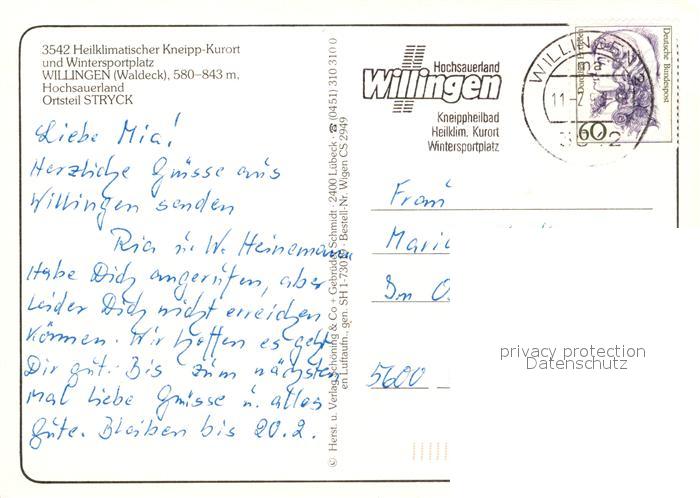 3542 Heilklimatischer Kneipp-Kurort
und Wintersportplatz
WILLINGEN (Waldeck), 580–843 m,
Hochsauerland
Ortsteil STRYCK
Liebe Mia!
Herzliche Grüsse aus
Willingen senden
Ria u. W. Heinemann
Habe Dich angerufen, aber
leider Dich nicht erreichen
können. Wir hoffen es geht
Dir gut. Bis zum nächsten
Mal liebe Grüsse u. alles
Gute. Bleiben bis 20.2.
© Herst. u. Verlag Schöning & Co + Gebrüder Schmidt · 2400 Lübeck · ☎ (0451) 310 310 0
en Luftaufn., gen. SH 1-730/19 · Bestell-Nr. Wigen CS 2949
Hochsauerland
Willingen
Kneippheilbad
Heilklim. Kurort
Wintersportplatz
WILLINGEN
ma
11-2
60
Deutsche Bundespost
Frau
Maria
Im
5600
privacy protection
Datenschutz